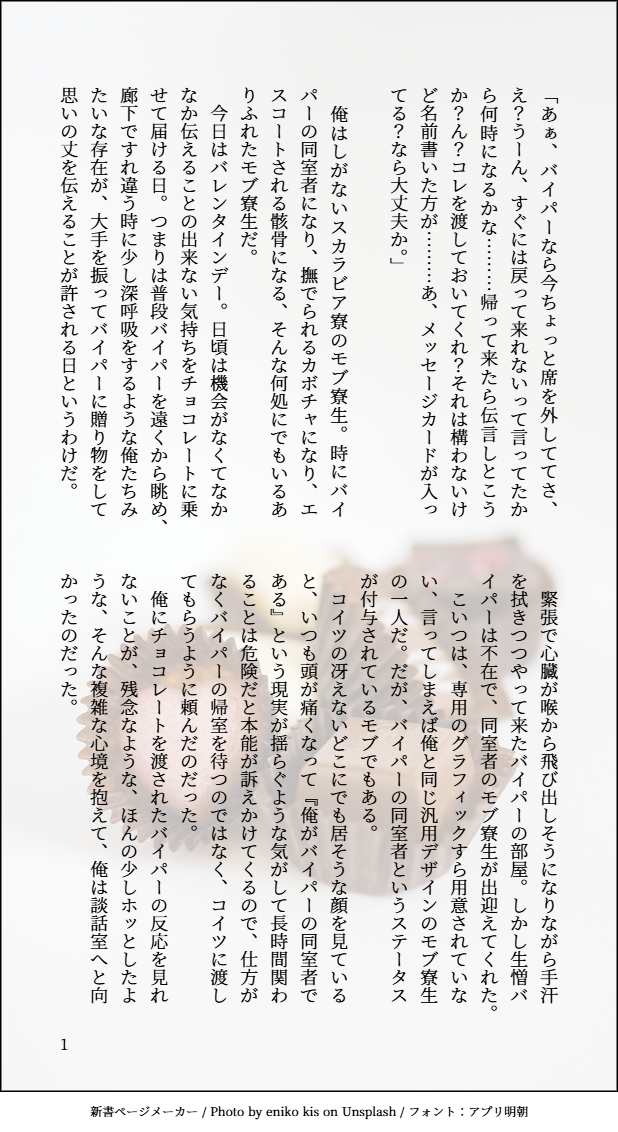 「あぁ、バイパーなら今ちょっと席を外しててさ、
え？うーん、すぐには戻って来れないって言ってたか
ら何時になるかな………帰って来たら伝言しとこう
か？ん？コレを渡しておいてくれ？それは構わないけ
ど名前書いた方が………あ、メッセージカードが入っ
てる？なら大丈夫か。」
俺はしがないスカラビア寮のモブ寮生。時にバイ
パーの同室者になり、撫でられるカボチャになり、エ
スコートされる骸骨になる、そんな何処にでもいるあ
りふれたモブ寮生だ。
今日はバレンタインデー。日頃は機会がなくてなか
なか伝えることの出来ない気持ちをチョコレートに乗
せて届ける日。つまりは普段バイパーを遠くから眺め、
廊下ですれ違う時に少し深呼吸をするような俺たちみ
たいな存在が、大手を振ってバイパーに贈り物をして
思いの丈を伝えることが許される日というわけだ。
緊張で心臓が喉から飛び出しそうになりながら手汗
を拭きつつやって来たバイパーの部屋。しかし生憎バ
イパーは不在で、同室者のモブ寮生が出迎えてくれた。
こいつは、専用のグラフィックすら用意されていな
い、言ってしまえば俺と同じ汎用デザインのモブ寮生
の一人だ。だが、バイパーの同室者というステータス
が付与されているモブでもある。
コイツの冴えないどこにでも居そうな顔を見ている
と、いつも頭が痛くなって『俺がバイパーの同室者で
ある』という現実が揺らぐような気がして長時間関わ
ることは危険だと本能が訴えかけてくるので、仕方が
なくバイパーの帰室を待つのではなく、コイツに渡し
てもらうように頼んだのだった。
俺にチョコレートを渡されたバイパーの反応を見れ
ないことが、残念なような、ほんの少しホッとしたよ
うな、そんな複雑な心境を抱えて、俺は談話室へと向
かったのだった。
1
新書ページメーカー / Photo by eniko kis on Unsplash / フォント：アプリ明朝